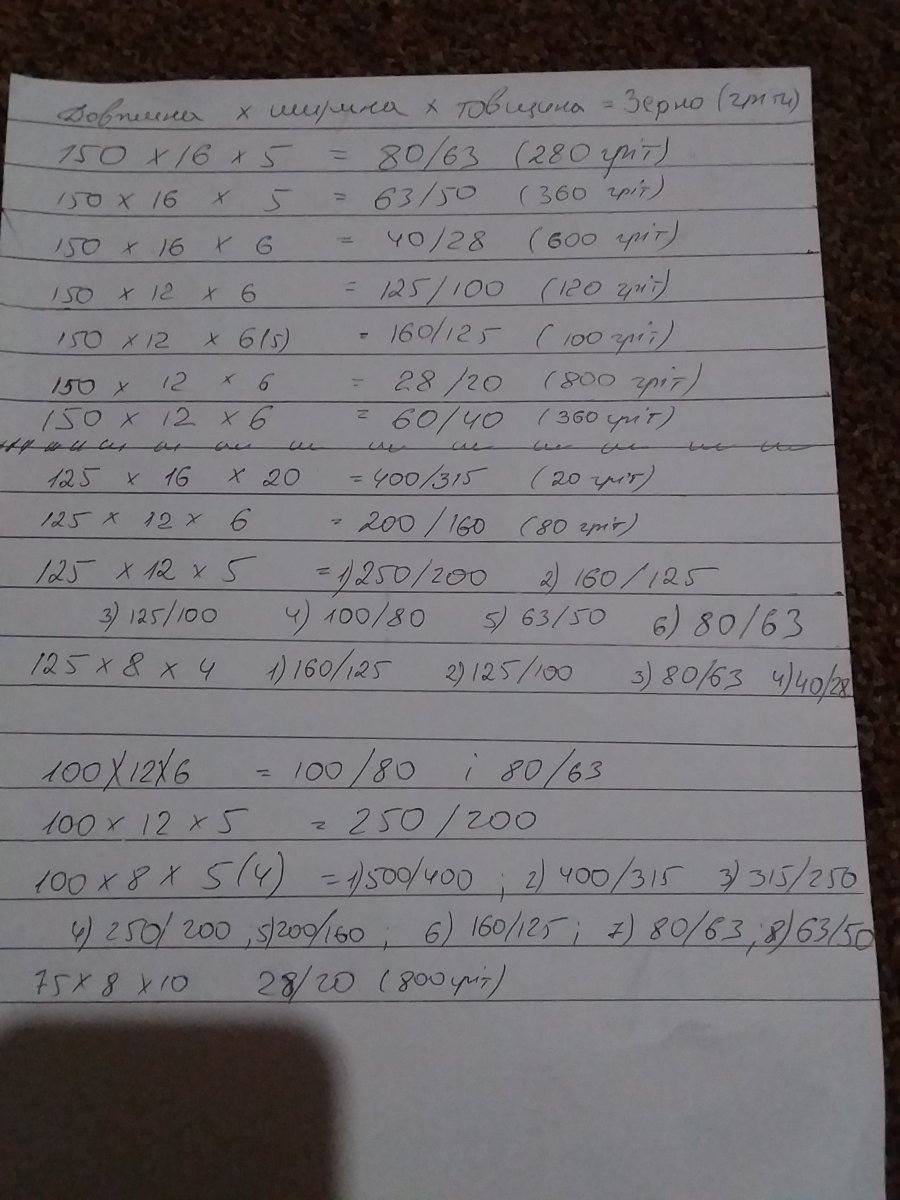 Довжина х ширина х товщина = Зерно (гріти)
150 х 16 х 5 = 80/63 (280 гріт)
150 х 16 х 5 = 63/50 (360 гріт)
150 х 16 х 6 = 40/28 (600 гріт)
150 х 12 х 6 = 125/100 (120 гріт)
150 х 12 х 6(5) = 160/125 (100 гріт)
150 х 12 х 6 = 28/20 (800 гріт)
150 х 12 х 6 = 60/40 (360 гріт)
125 х 16 х 20 = 400/315 (20 гріт)
125 х 12 х 6 = 200/160 (80 гріт)
125 х 12 х 5 = 1) 250/200 2) 160/125
3) 125/100 4) 100/80 5) 63/50 6) 80/63
125 х 8 х 4 1) 160/125 2) 125/100 3) 80/63 4) 40/28
100 х 12 х 6 = 100/80 і 80/63
100 х 12 х 5 = 250/200
100 х 8 х 5(4) = 1) 500/400 ; 2) 400/315 3) 315/250
4) 250/200 , 5) 200/160 ; 6) 160/125 ; 7) 80/63 ; 8) 63/50
75 х 8 х 10 28/20 (800 гріт)